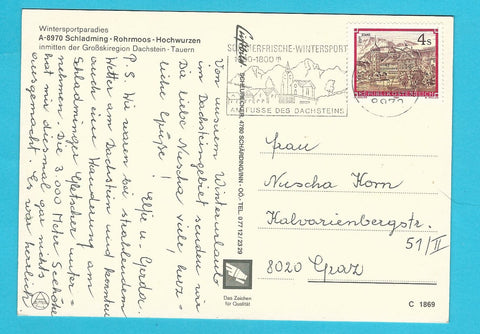 Wintersportparadies
A-8970 Schladming · Rohrmoos · Hochwurzen
inmitten der Großskiregion Dachstein - Tauern
Von unserem Winterurlaub
im Dachsteingebiet senden wir
Dir liebe Nuscha viele, herz-
liche Grüße! Elfe u. Gerda.
P.S. Wir waren bei strahlendem
Wetter am Dachstein und konnten
auch eine Wanderung am
Schladminger Gletscher unter-
nehmen. Die 3.000 Meter Seehöhe
hat mir diesmal gar nichts
ausgemacht. Es war herrlich
SOMMERFRISCHE-WINTERSPORT
AM FUSSE DES DACHSTEINS
4 S
REPUBLIK ÖSTERREICH
4780 SCHÄRDING/INN · OÖ · TEL. 077 12/23 29
Frau
Nuscha Korn
Kalvarienbergstr.
51/II
8020 Graz
Das Zeichen
für Qualität
C 1869